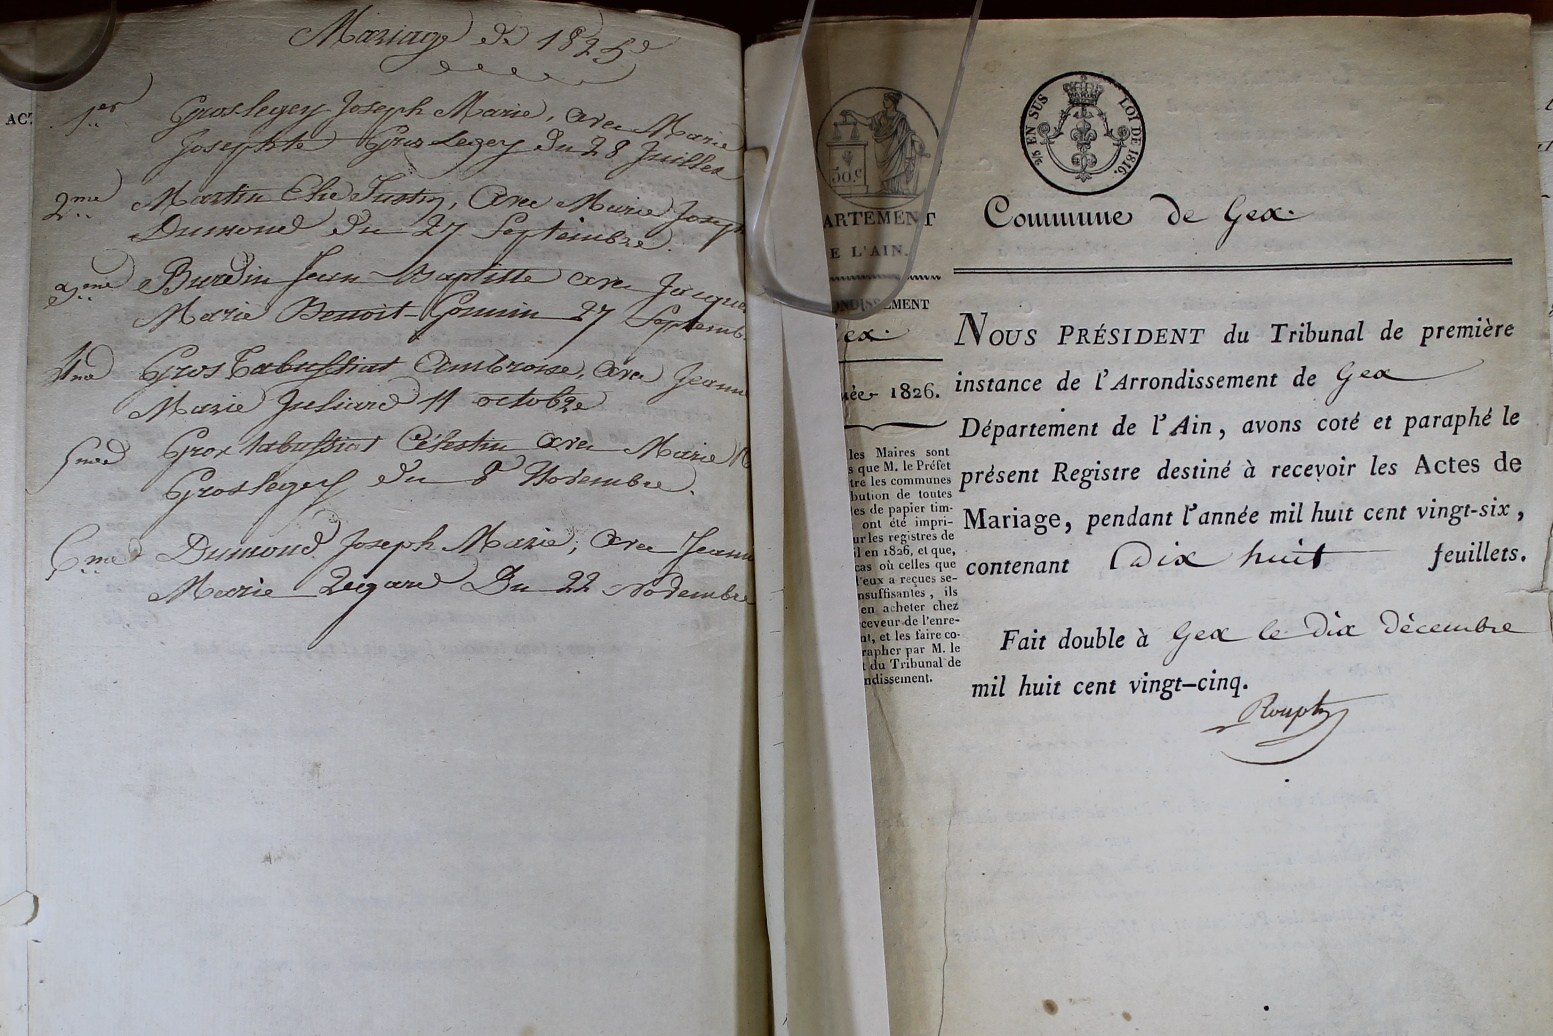 Mariage de 1825
1er Groslegey Joseph Marie, avec Marie
Josephte Gros Legey du 28 Juillet
2me Martin Elie Justin, avec Marie Joseph
Dumond du 27 Septembre.
3eme Burdin Jean Baptiste avec Jacque
Marie Benoit-Gonnin 27 Septemb
4me Gros Tabussiat Ambroise, avec Jeanne
Marie Juliard 11 octobre
5me Gros tabussiat Célestin avec Marie
Groslegey du 8 Novembre.
6me Dumond Joseph Marie, avec Jeann
Marie Du 22 Novembre
ACT
50.c
ARTEMENT
E L'AIN.
ONDISSEMENT
ex.
née 1826.
les Maires sont
s que M. le Préfet
tre les communes
bution de toutes
es de papier tim-
ont été impri-
ur les registres de
l en 1826, et que,
cas où celles que
l'eux a reçues se-
nsuffisantes, ils
en acheter chez
ceveur de l'enre-
nt, et les faire co-
rapher par M. le
t du Tribunal de
ndissement.
EN SUS LOI DE 1816.
Commune de Gex.
NOUS PRÉSIDENT du Tribunal de première
instance de l'Arrondissement de Gex
Département de l'Ain, avons coté et paraphé le
présent Registre destiné à recevoir les Actes de
Mariage, pendant l'année mil huit cent vingt-six,
contenant Dix huit feuillets.
Fait double à Gex le dix décembre
mil huit cent vingt-cinq.